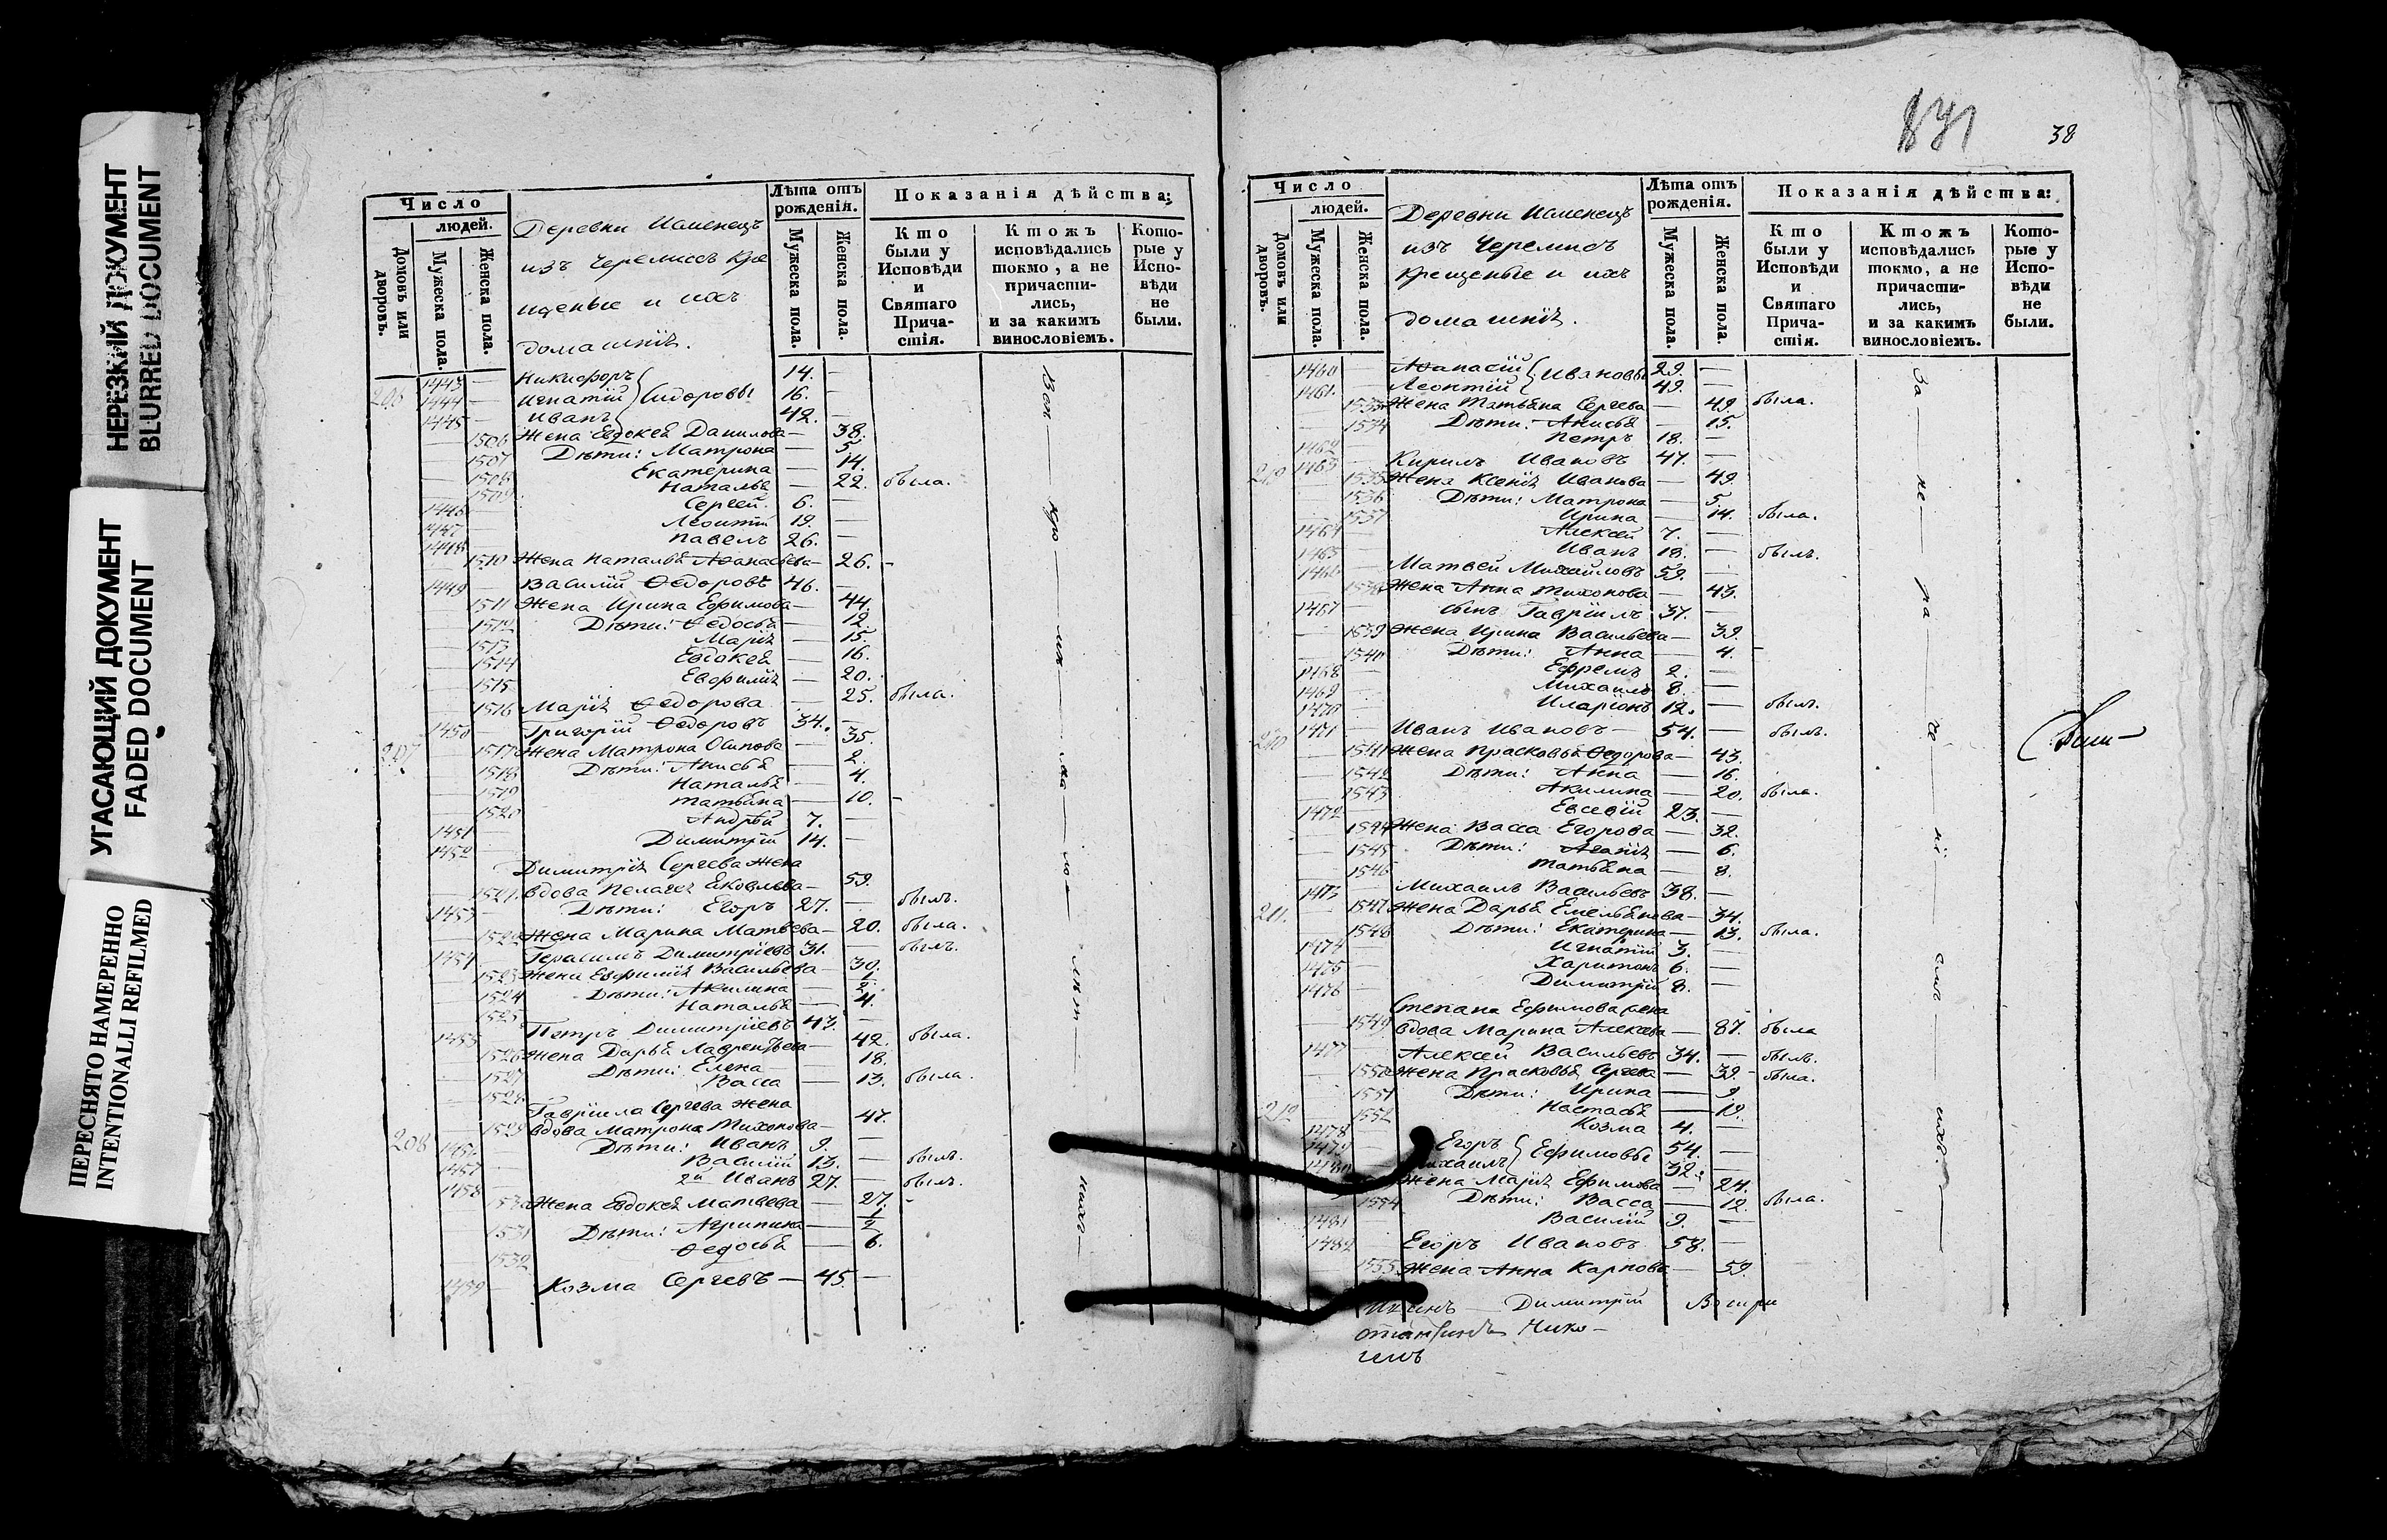 НЕРЕЗКИЙ ДОКУМЕНТ
BLURRED DOCUMENT
УГАСАЮЩИЙ ДОКУМЕНТ
FADED DOCUMENT
ПЕРЕСНЯТО НАМЕРЕННО
INTENTIONALLI REFILMED
Число
людей.
Домовъ или дворовъ.
Мужеска пола.
Женска пола.
Деревни
изъ Черемисъ Кре
щеные и ихъ
домашнiѣ.
Лѣта отъ рожденія.
Мужеска пола.
Женска пола.
Показанія дѣйства:
Кто были у Исповѣди и Святаго Причастія.
Ктожъ исповѣдались токмо, а не причастились, и за какимъ винословіемъ.
Которые у Исповѣди не были.
206 1443 — Никифоръ 14. —
1444 — Игнатій Сидоровы 16. —
1445 — Иванъ 42. —
— 1506 Жена Евдокея Данилова — 38.
— 1507 Дѣти: Матрона — 5.
— 1508 Екатерина — 14.
— 1509 Наталья — 22. была.
1446 Сергей 6. —
1447 — Леонтій 19. —
1448 — Павелъ 26. —
— 1510 Жена Наталья Аѳанасьева — 26. -
1449 — Василій Ѳедоровъ 46. —
— 1511 Жена Ирина Ефимова — 44.
— 1512 Дѣти: Ѳедосья — 12.
— 1513 Марія — 15.
— 1514 Евдокея — 16.
— 1515 Евфимія — 20.
— 1516 Марія Ѳедорова — 25. была.
207 1450 — Григорій Ѳедоровъ 34. —
— 1517 Жена Матрона Осипова — 35.
— 1518 Дѣти: Анисья — 2.
— 1519 Наталья — 4.
— 1520 Татьяна — 10. -
1451 — Андрѣй 7. —
1452 — Димитрій 14. —
Димитрія Сергева жена
— 1521 вдова Пелагея Яковлева — 59.
1453 — Дѣти: Егоръ 27. — былъ.
— 1522 Жена Марина Матвева — 20. была.
1454 — Герасимъ Димитріевъ 31. — былъ.
— 1523 Жена Евфимія Васильева — 30.
— 1524 Дѣти: Акилина — 1/2.
— 1525 Наталья — 4.
1455 — Петръ Димитріевъ 43. —
— 1526 Жена Дарья Лаврентьева — 42. была.
— 1527 Дѣти: Елена — 18.
— 1528 Васса — 13. была.
Гавріила Сергева жена
— 1529 вдова Матрона Тихонова — 47.
208 1456 — Дѣти: Иванъ 9. —
1457 — Василій 13. — былъ.
1458 — 2й Иванъ 27. — былъ.
— 1530 Жена Евдокея Матвева — 27. -
— 1531 Дѣти: Агрипина — 1/2
— 1532 Ѳедосья — 6.
1459 — Козма Сергевъ — 45. —
871
38
Число
людей.
Домовъ или дворовъ.
Мужеска пола.
Женска пола.
Деревни
изъ Черемисъ
крещеные и ихъ
домашнiѣ.
Лѣта отъ рожденія.
Мужеска пола.
Женска пола.
Показанія дѣйства:
Кто были у Исповѣди и Святаго Причастія.
Ктожъ исповѣдались токмо, а не причастились, и за какимъ винословіемъ.
Которые у Исповѣди не были.
1460 — Аѳанасій Ивановы 29. —
1461 — Леонтій 49. —
— 1533 Жена Татьяна Сергева — 49. была.
— 1534 Дѣти: Анисья — 15.
1462 Петръ 18. —
1463 — Кирилъ Ивановъ 47. —
— 1535 Жена Ксенія Иванова — 49.
— 1536 Дѣти: Матрона — 5.
— 1537 Ирина — 14. была.
1464 — Алексей 7. —
1465 — Иванъ 18. — былъ.
1466 — Матвей Михайловъ 59. —
— 1538 Жена Анна Тихонова — 43.
1467 — сынъ Гавріилъ 37. —
— 1539 Жена Ирина Васильева — 39.
— 1540 Дѣти: Анна — 4. -
1468 — Ефремъ 2. —
1469 — Михаилъ 8. —
1470 — Иларіонъ 12. — былъ.
210 1471 — Иванъ Ивановъ — 54. — былъ.
— 1541 Жена Прасковья Ѳедорова — 43.
— 1542 Дѣти: Анна — 16.
— 1543 Акилина — 20. была.
1472 Евсевій 23. —
— 1544 Жена Васса Егорова — 32.
— 1545 Дѣти: Агапія — 6.
— 1546 Татьяна — 8.
1473 — Михаилъ Васильевъ 38. —
211. — 1547 Жена Дарья Емельянова — 34.
— 1548 Дѣти: Екатерина — 13. была.
1474 — Игнатій 3. —
1475 — Харитонъ 6. —
1476 — Димитрій 8. —
Степана Ефимова жена
— 1549 вдова Марина Алексева — 87. была
1477 — Алексей Васильевъ 34. — былъ.
— 1550 Жена Прасковья Сергева — 39. - была.
— 1551 Дѣти: Ирина — 9.
212 1552 Настасья — 19.
1478 Козма 4. —
1479 — Егоръ Ефимовы 54. —
1480 Михаилъ 32. —
Жена Марія Ефимова — 24.
1554 Дѣти: Васса — 12. была.
1481 — Василій 9. —
1482 — Егоръ Ивановъ 58. —
1555 Жена Анна Карпова — 59.
Димитрій